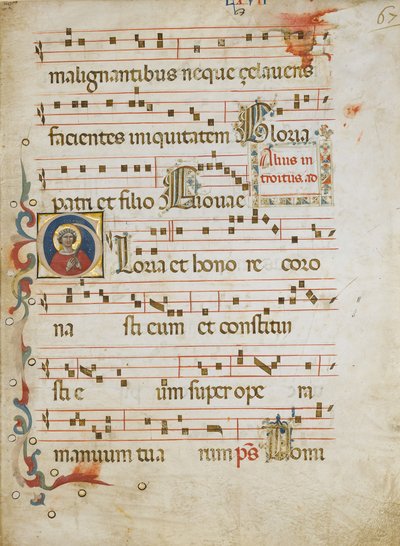 67
malignantibus neque çelaveris
facientes iniquitatem Gloria
Alius in
troitus. ad
patri et filio Eiouae
Gloria et hono re coro
na sti eum et constitui
sti e um super ope ra
manuum tua rum ps Domi